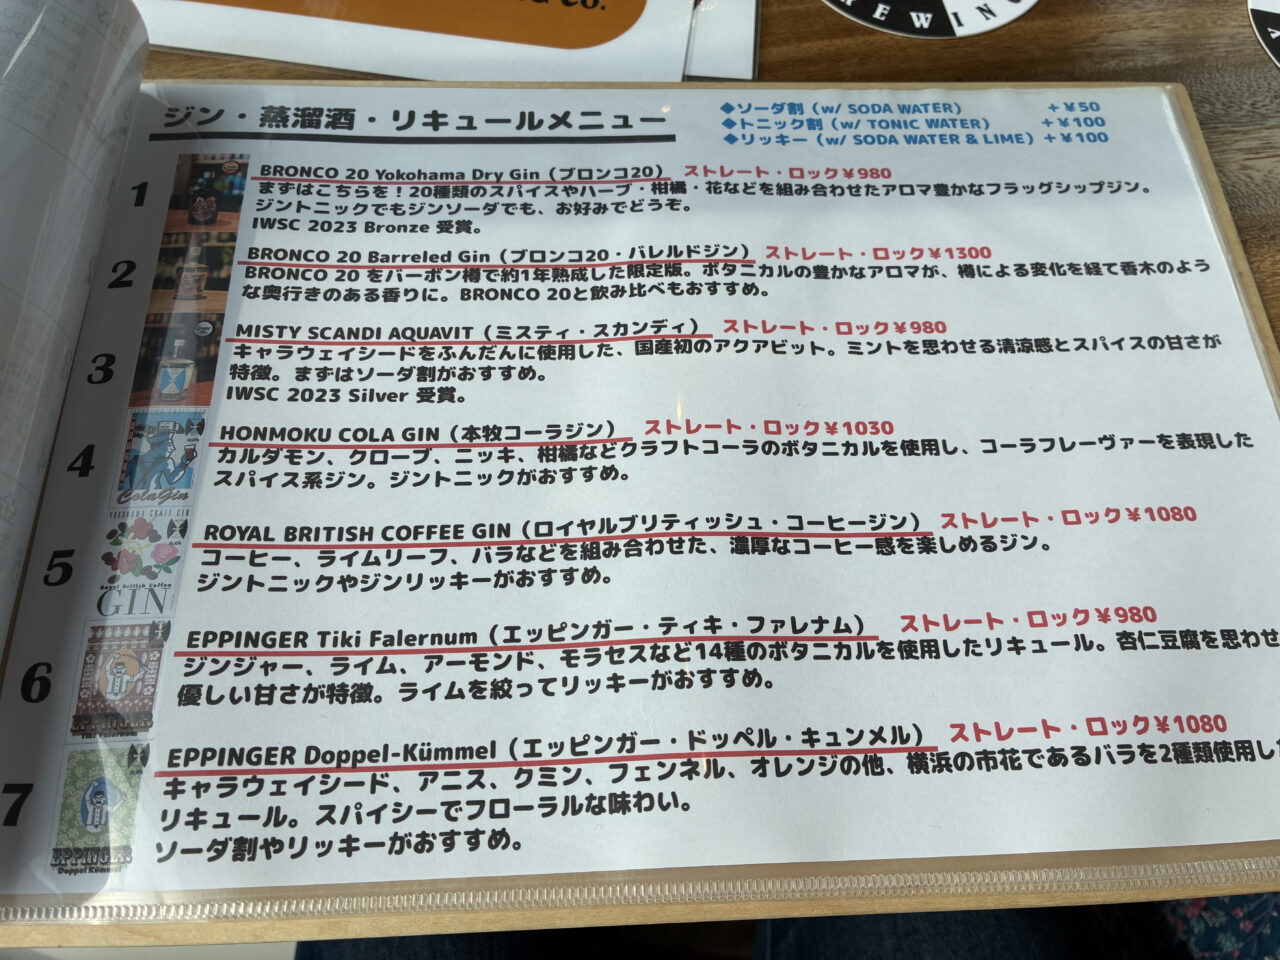 REWING
ジン・蒸溜酒・リキュールメニュー
◆ソーダ割（w/ SODA WATER） +¥50
◆トニック割（w/ TONIC WATER） +¥100
◆リッキー（w/ SODA WATER & LIME） +¥100
1 BRONCO 20 Yokohama Dry Gin（ブロンコ20） ストレート・ロック¥980
まずはこちらを！20種類のスパイスやハーブ・柑橘・花などを組み合わせたアロマ豊かなフラッグシップジン。
ジントニックでもジンソーダでも、お好みでどうぞ。
IWSC 2023 Bronze 受賞。
2 BRONCO 20 Barreled Gin（ブロンコ20・バレルドジン） ストレート・ロック¥1300
BRONCO 20 をバーボン樽で約1年熟成した限定版。ボタニカルの豊かなアロマが、樽による変化を経て香木のよう
な奥行きのある香りに。BRONCO 20と飲み比べもおすすめ。
3 MISTY SCANDI AQUAVIT（ミスティ・スカンディ） ストレート・ロック¥980
キャラウェイシードをふんだんに使用した、国産初のアクアビット。ミントを思わせる清涼感とスパイスの甘さが
特徴。まずはソーダ割がおすすめ。
IWSC 2023 Silver 受賞。
4 HONMOKU COLA GIN（本牧コーラジン） ストレート・ロック¥1030
カルダモン、クローブ、ニッキ、柑橘などクラフトコーラのボタニカルを使用し、コーラフレーヴァーを表現した
スパイス系ジン。ジントニックがおすすめ。
ColaGin
YOKOHAMA CRAFT GIN
5 ROYAL BRITISH COFFEE GIN（ロイヤルブリティッシュ・コーヒージン） ストレート・ロック¥1080
コーヒー、ライムリーフ、バラなどを組み合わせた、濃厚なコーヒー感を楽しめるジン。
ジントニックやジンリッキーがおすすめ。
Royal British Coffee
GIN
6 EPPINGER Tiki Falernum（エッピンガー・ティキ・ファレナム） ストレート・ロック¥980
ジンジャー、ライム、アーモンド、モラセスなど14種のボタニカルを使用したリキュール。杏仁豆腐を思わせ
優しい甘さが特徴。ライムを絞ってリッキーがおすすめ。
EPPINGER
Tiki Falernum
7 EPPINGER Doppel-Kümmel（エッピンガー・ドッペル・キュンメル） ストレート・ロック¥1080
キャラウェイシード、アニス、クミン、フェンネル、オレンジの他、横浜の市花であるバラを2種類使用した
リキュール。スパイシーでフローラルな味わい。
ソーダ割やリッキーがおすすめ。
EPPINGER
Doppel Kümmel